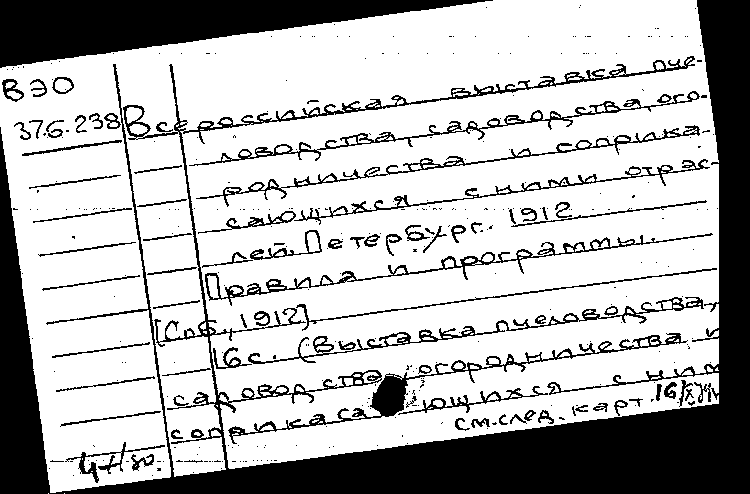 ВЭО
37.6.238 Всероссийская выставка пче-
ловодства, садоводства, ого-
родничества и соприка-
сающихся с ними отрас-
лей. Петербург. 1912.
Правила и программы.
[Спб., 1912].
16 с. (Выставка пчеловодства,
садоводства, огородничества и
соприкаса ющихся с ним
см. след. карт.